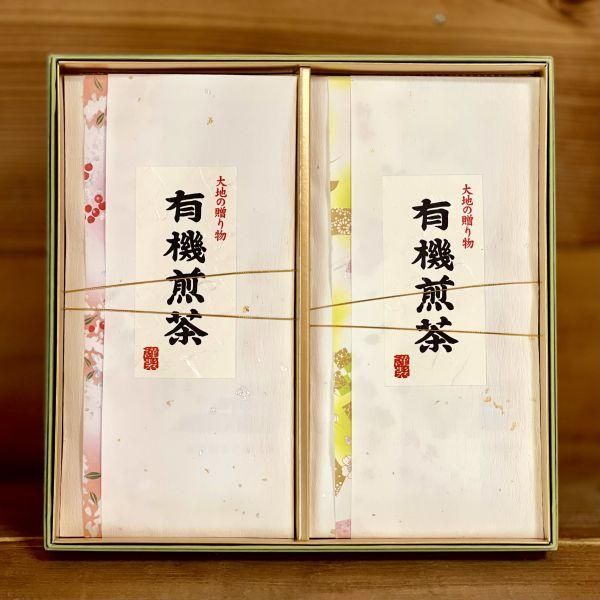 大地の贈り物
有機煎茶
謹製
大地の贈り物
有機煎茶
謹製